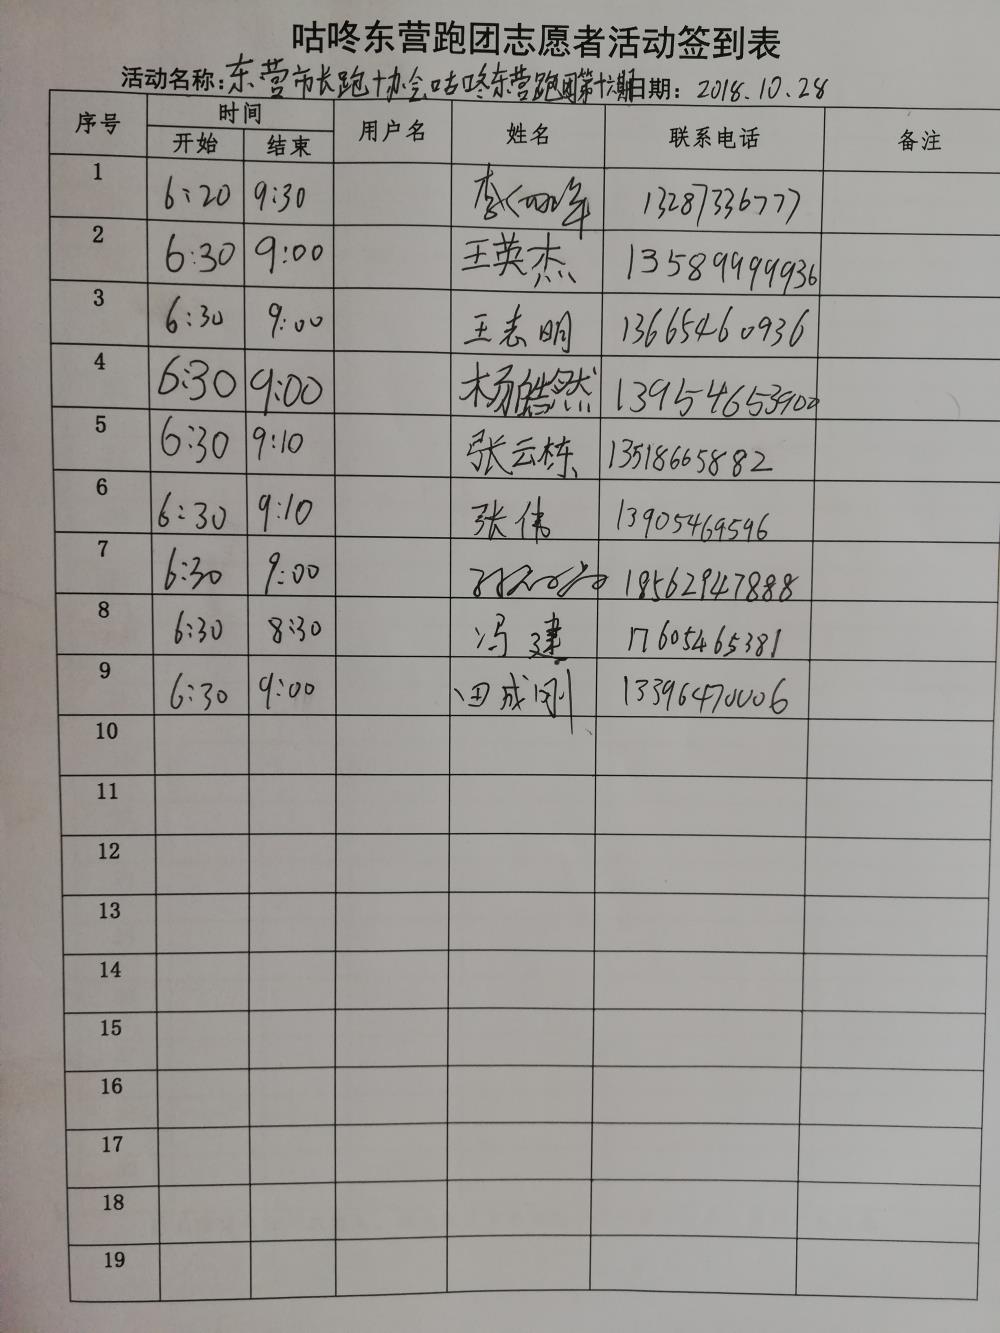 咕咚东营跑团志愿者活动签到表
活动名称:东营市长跑协会咕咚东营跑团第十六期 日期: 2018.10.28
序号 时间 用户名 姓名 联系电话 备注
开始 结束
1 6:20 9:30 李 年 13287336777
2 6:30 9:00 王英杰 13589999936
3 6:30 9:00 王志明 13665460936
4 6:30 9:00 杨皓然 13954653900
5 6:30 9:10 张云栋 13518665882
6 6:30 9:10 张伟 13905469596
7 6:30 9:00 18562947888
8 6:30 8:30 冯建 17605465381
9 6:30 9:00 田成刚 13396470006
10
11
12
13
14
15
16
17
18
19